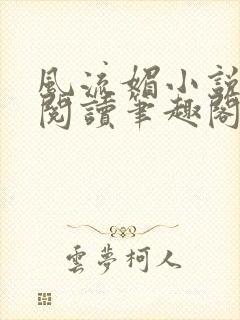 風流媚小說
閱讀筆趣閣
雲夢柯人